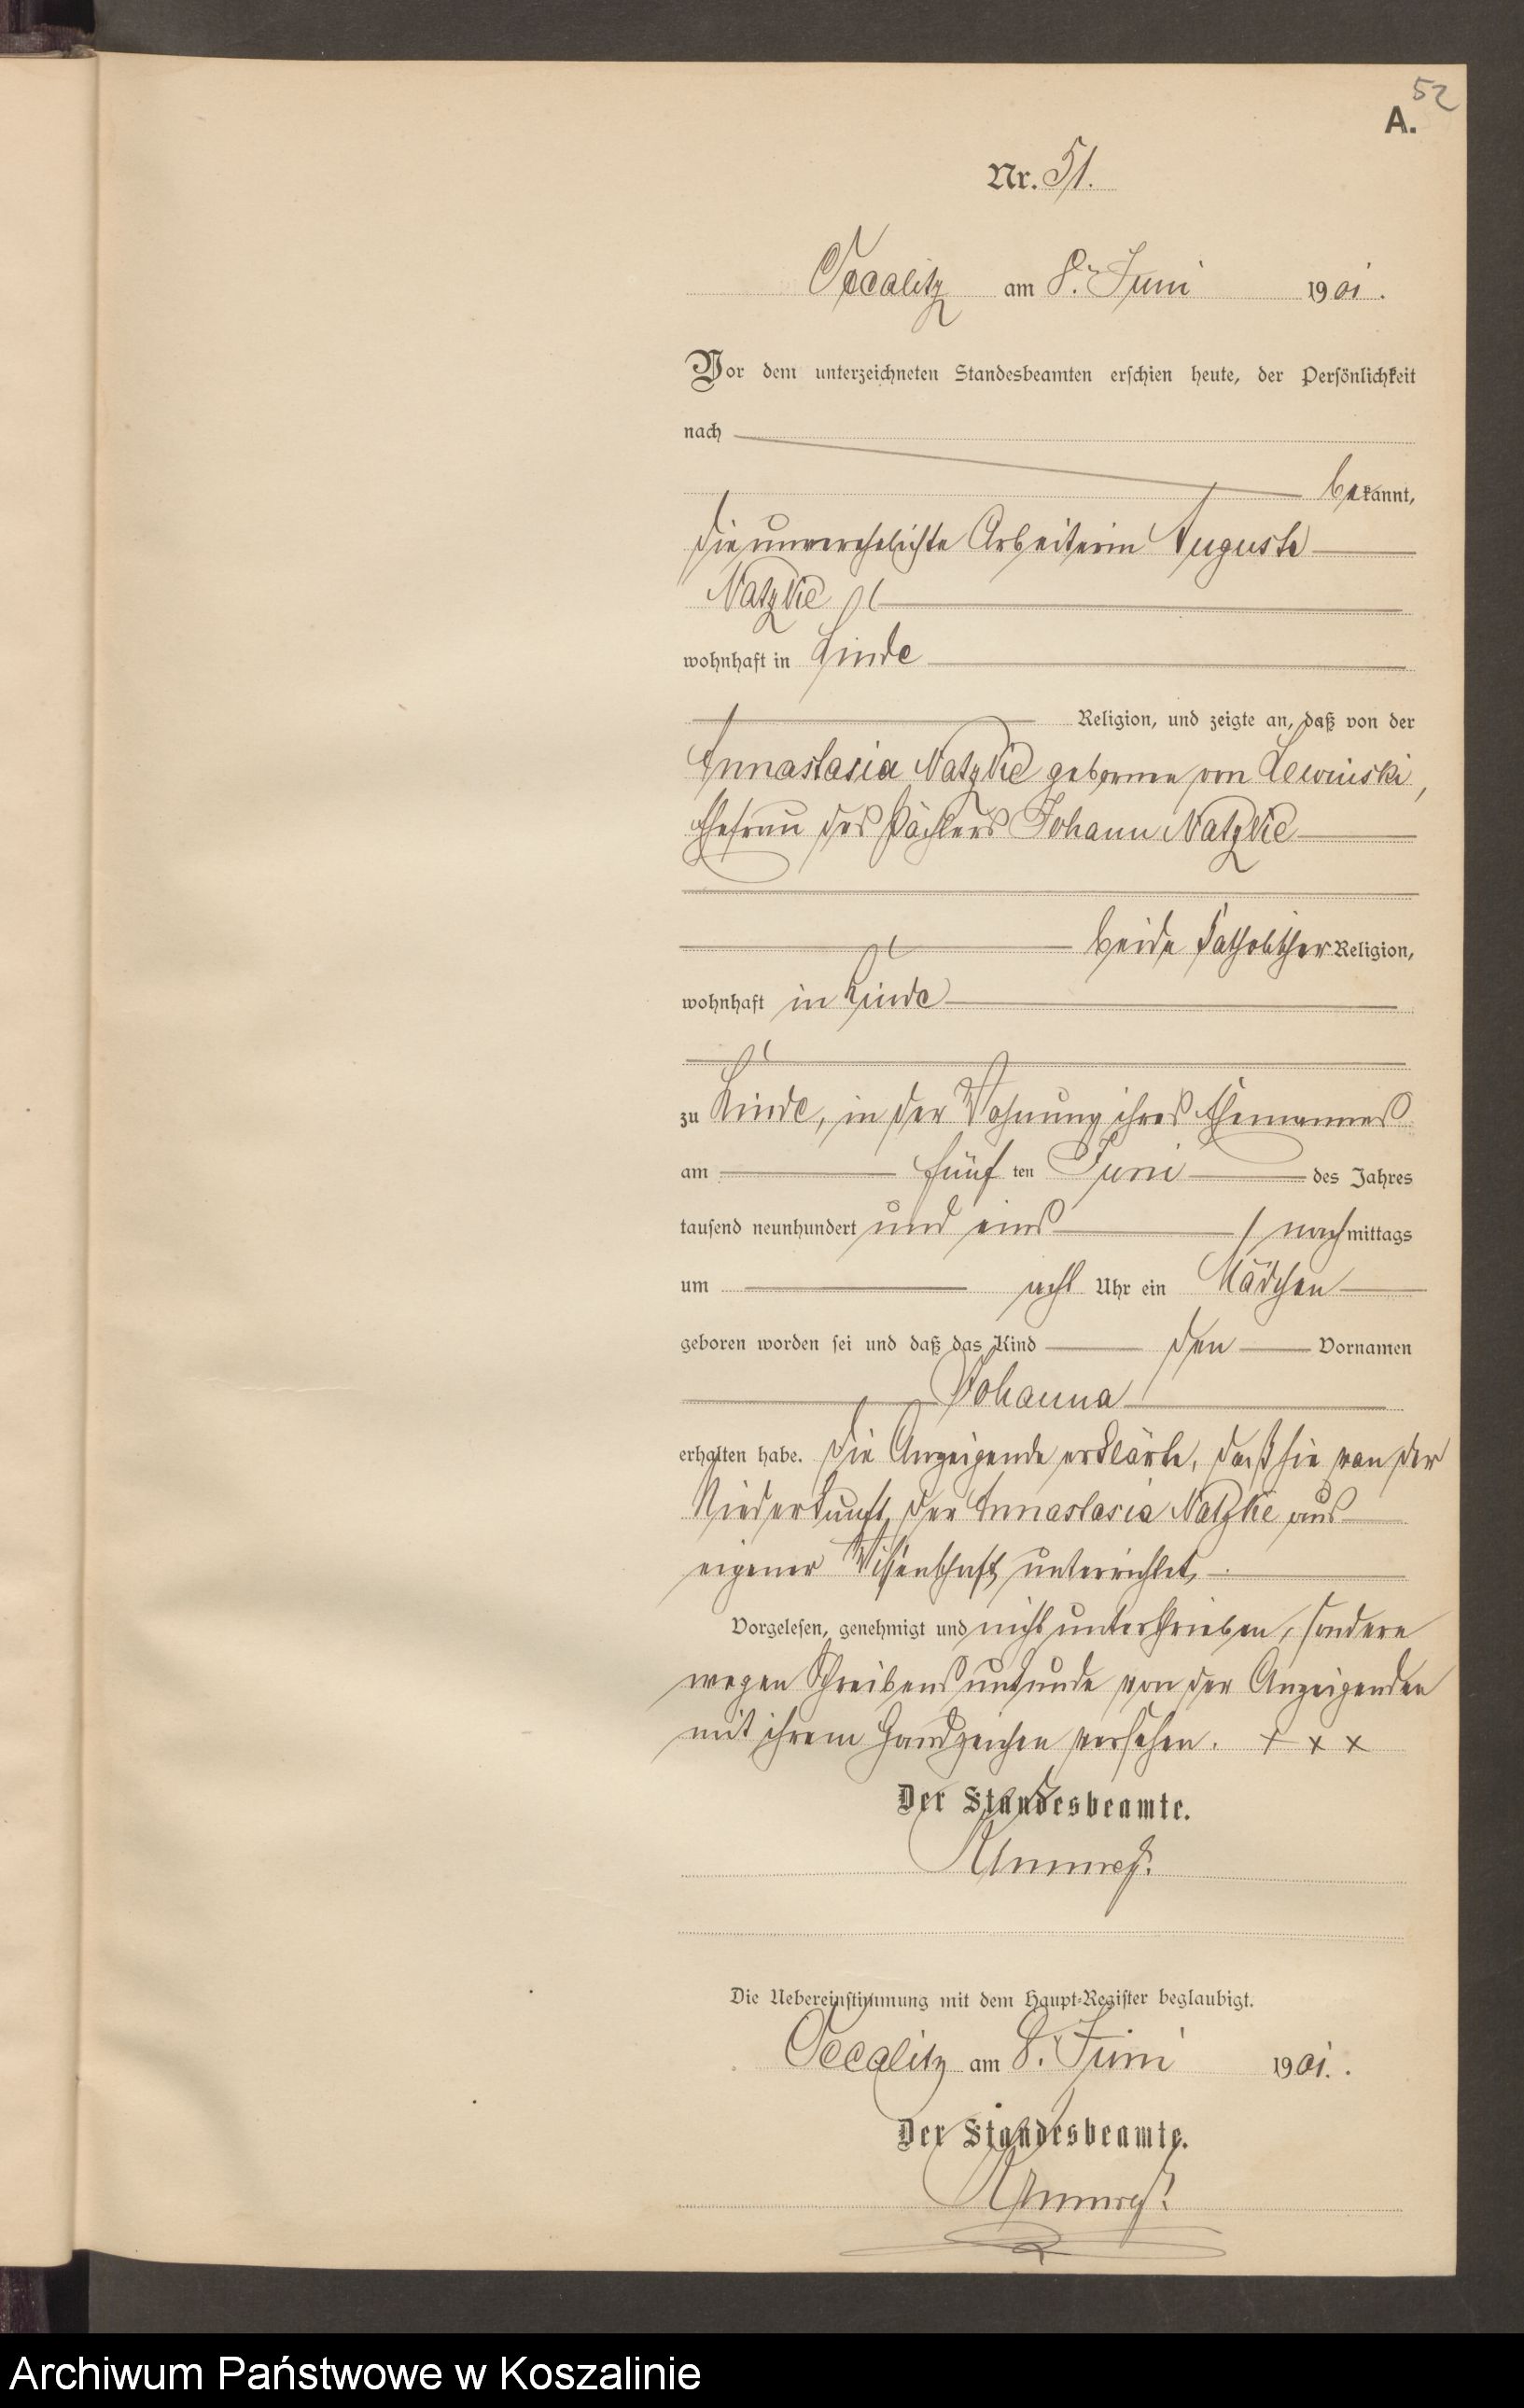 52
A.
Nr. 51.
Occalitz am 8. Juni 1901.
Vor dem unterzeichneten Standesbeamten erschien heute, der Persönlichkeit
nach
bekannt,
die unverehelichte Arbeiterin Auguste
Natzke
wohnhaft in Linde
Religion, und zeigte an, daß von der
Annastasia Natzke geborenen von Lewinski,
Ehefrau des Pächters Johann Natzke
beide katholischer Religion,
wohnhaft in Linde
zu Linde, in der Wohnung ihres Ehemannes
am fünf ten Juni des Jahres
tausend neunhundert und eins nachmittags
um acht Uhr ein Mädchen
geboren worden sei und daß das Kind den Vornamen
Johanna
erhalten habe. Die Anzeigende erklärte, daß sie von der
Niederkunft der Annastasia Natzke aus
eigener Wissenschaft unterrichtet.
Vorgelesen, genehmigt und nicht unterschrieben, sondern
wegen Schreibensunkunde von der Anzeigenden
mit ihrem Handzeichen versehen. + x x
Der Standesbeamte.
Die Uebereinstimmung mit dem Haupt-Register beglaubigt.
Occalitz am 8. Juni 1901.
Der Standesbeamte.
Archiwum Państwowe w Koszalinie